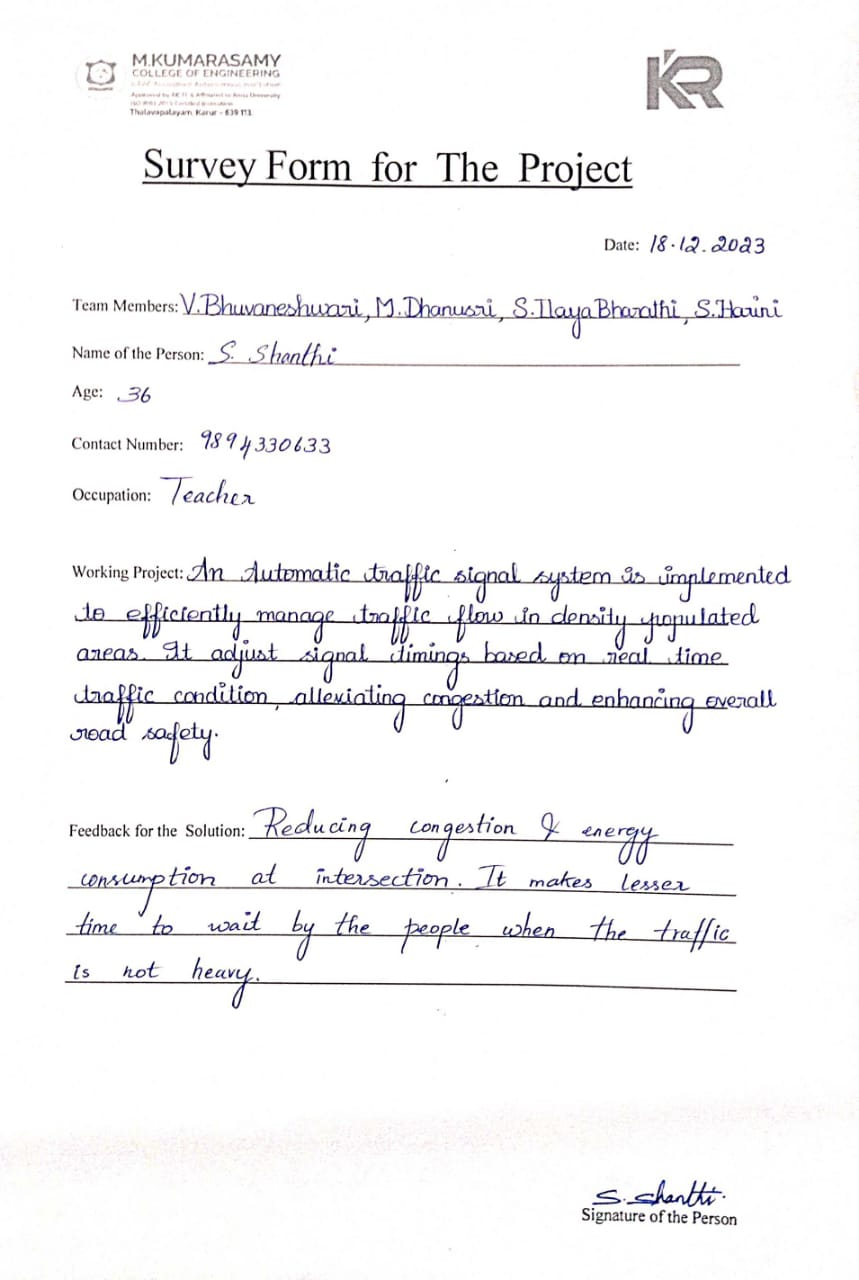 M.KUMARASAMY
COLLEGE OF ENGINEERING
Approved by AICTE & Affiliated to Anna University
Thalavapalayam, Karur - 639 113.
KR
Survey Form for The Project
Date: 18.12.2023
Team Members: V.Bhuvaneshwari, M.Dhanusri, S.IlayaBharathi, S.Harini
Name of the Person: S. Shanthi
Age: 36
Contact Number: 9894330633
Occupation: Teacher
Working Project: An Automatic traffic signal system is implemented
to efficiently manage traffic flow in density populated
areas. It adjust signal timings based on real time
traffic condition, alleviating congestion and enhancing overall
road safety.
Feedback for the Solution: Reducing congestion & energy
consumption at intersection. It makes lesser
time to wait by the people when the traffic
is not heavy.
S. Shanthi.
Signature of the Person